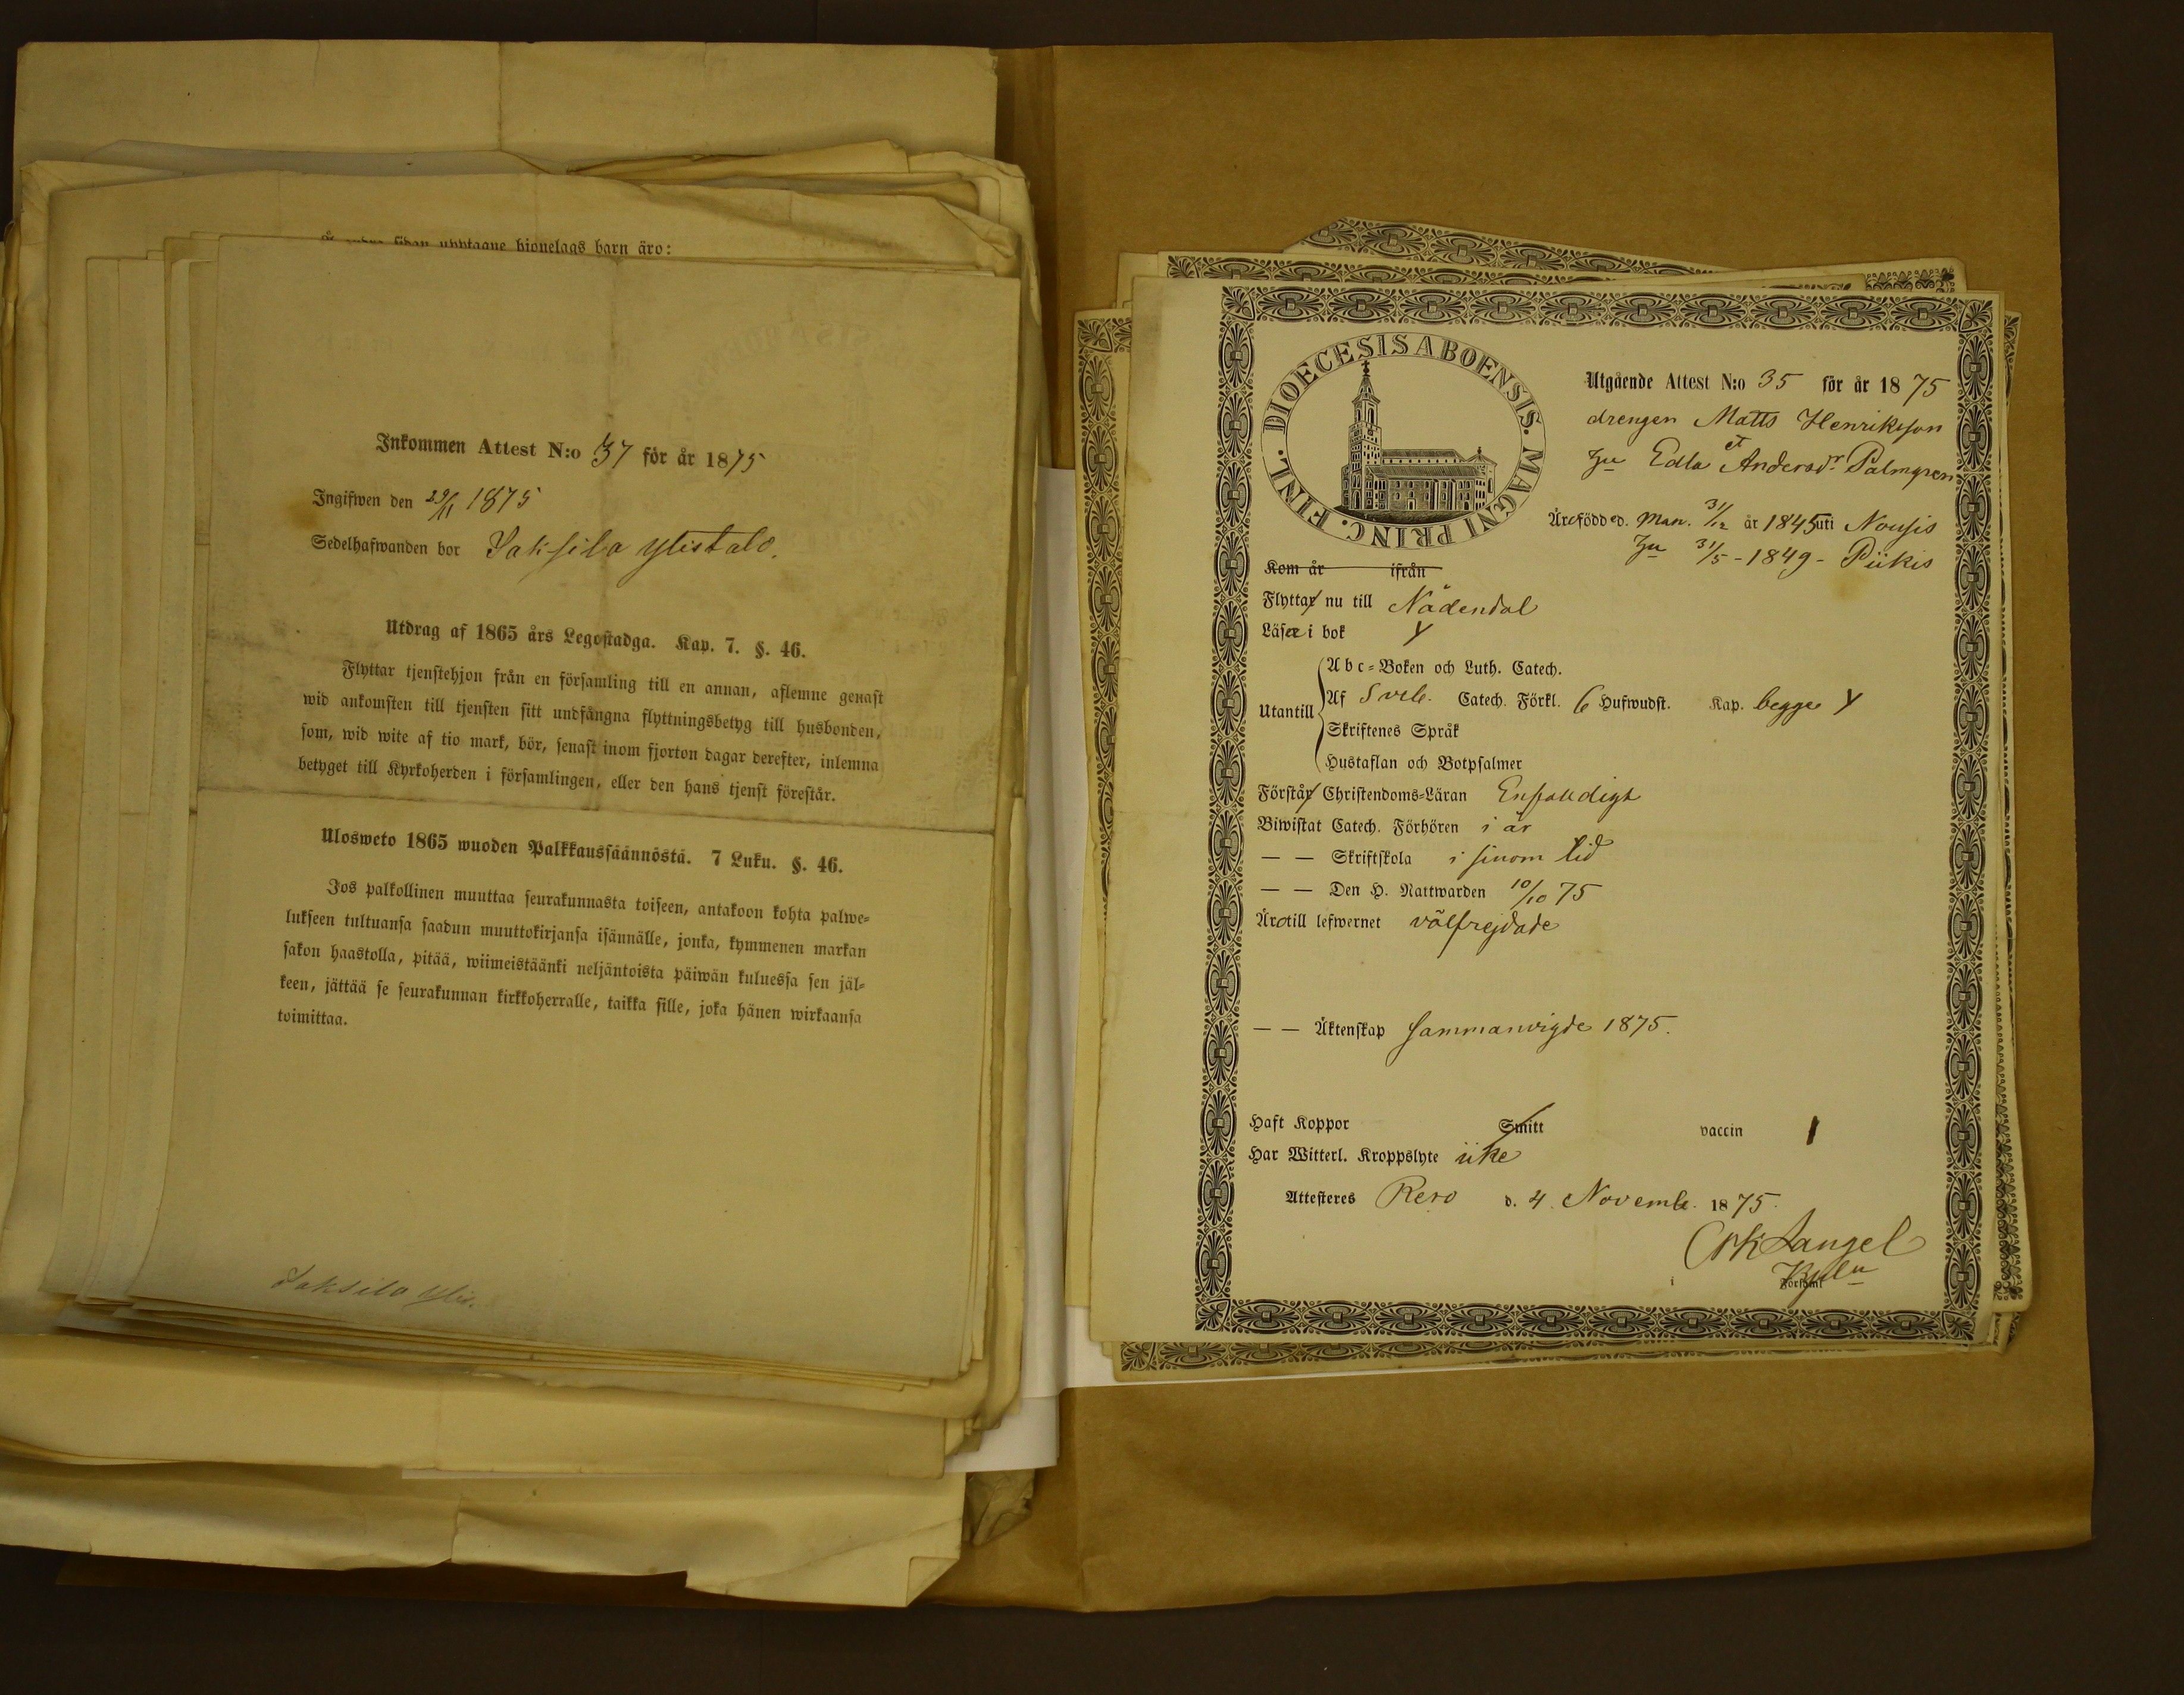 upptagne hionelags barn äro:
Inkommen Attest N:o 37 för år 1875
Ingifwen den 29/11 1875
Sedelhafwanden bor Saksila Ylistalo.
Utdrag af 1865 års Legostadga. Kap. 7. §. 46.
Flyttar tjenstehjon från en församling till en annan, aflemne genast
wid ankomsten till tjensten sitt undfångna flyttningsbetyg till husbonden,
som, wid wite af tio mark, bör, senast inom fjorton dagar derefter, inlemna
betyget till Kyrkoherden i församlingen, eller den hans tjenst förestår.
Ulosweto 1865 wuoden Palkkaussäännöstä. 7 Luku. §. 46.
Jos palkollinen muuttaa seurakunnasta toiseen, antakoon kohta palwe-
lukseen tultuansa saadun muuttokirjansa isännälle, jonka, kymmenen markan
sakon haastolla, pitää, wiimeistäänki neljäntoista päiwän kuluessa sen jäl-
keen, jättää se seurakunnan kirkkoherralle, taikka sille, joka hänen wirkaansa
toimittaa.
Saksila Ylis.
DIOECESIS ABOENSIS. MAGNI PRINC. FINL.
Utgående Attest N:o 35 för år 1875
drengen Matts Henriksson
et
Hu Edla Andersdr Palmgren
Äro född ed. Man. 31/12 år 1845 uti Nousis
Hu 31/5 - 1849 - Piikis
Kom år ifrån
Flyttar nu till Nådendal
Läser i bok Y
Abc-Boken och Luth. Catech.
Utantill Af Sveb. Catech. Förkl. 6 Hufwudst. Kap. begge Y
Skriftenes Språk
Hustaflan och Botpsalmer
Förstår Christendoms-Läran Enfalldigt
Biwistat Catech. Förhören i år
— — Skriftskola i sinom tid
— — Den H. Nattwarden 10/10 75
Äro till lefwernet välfrejdade
— — Äktenskap sammanvigde 1875.
Haft Koppor Smitt vaccin 1
Har Witterl. Kroppslyte icke
Attesteres Reso d. 4. Novemb. 1875.
Langel
i Församl